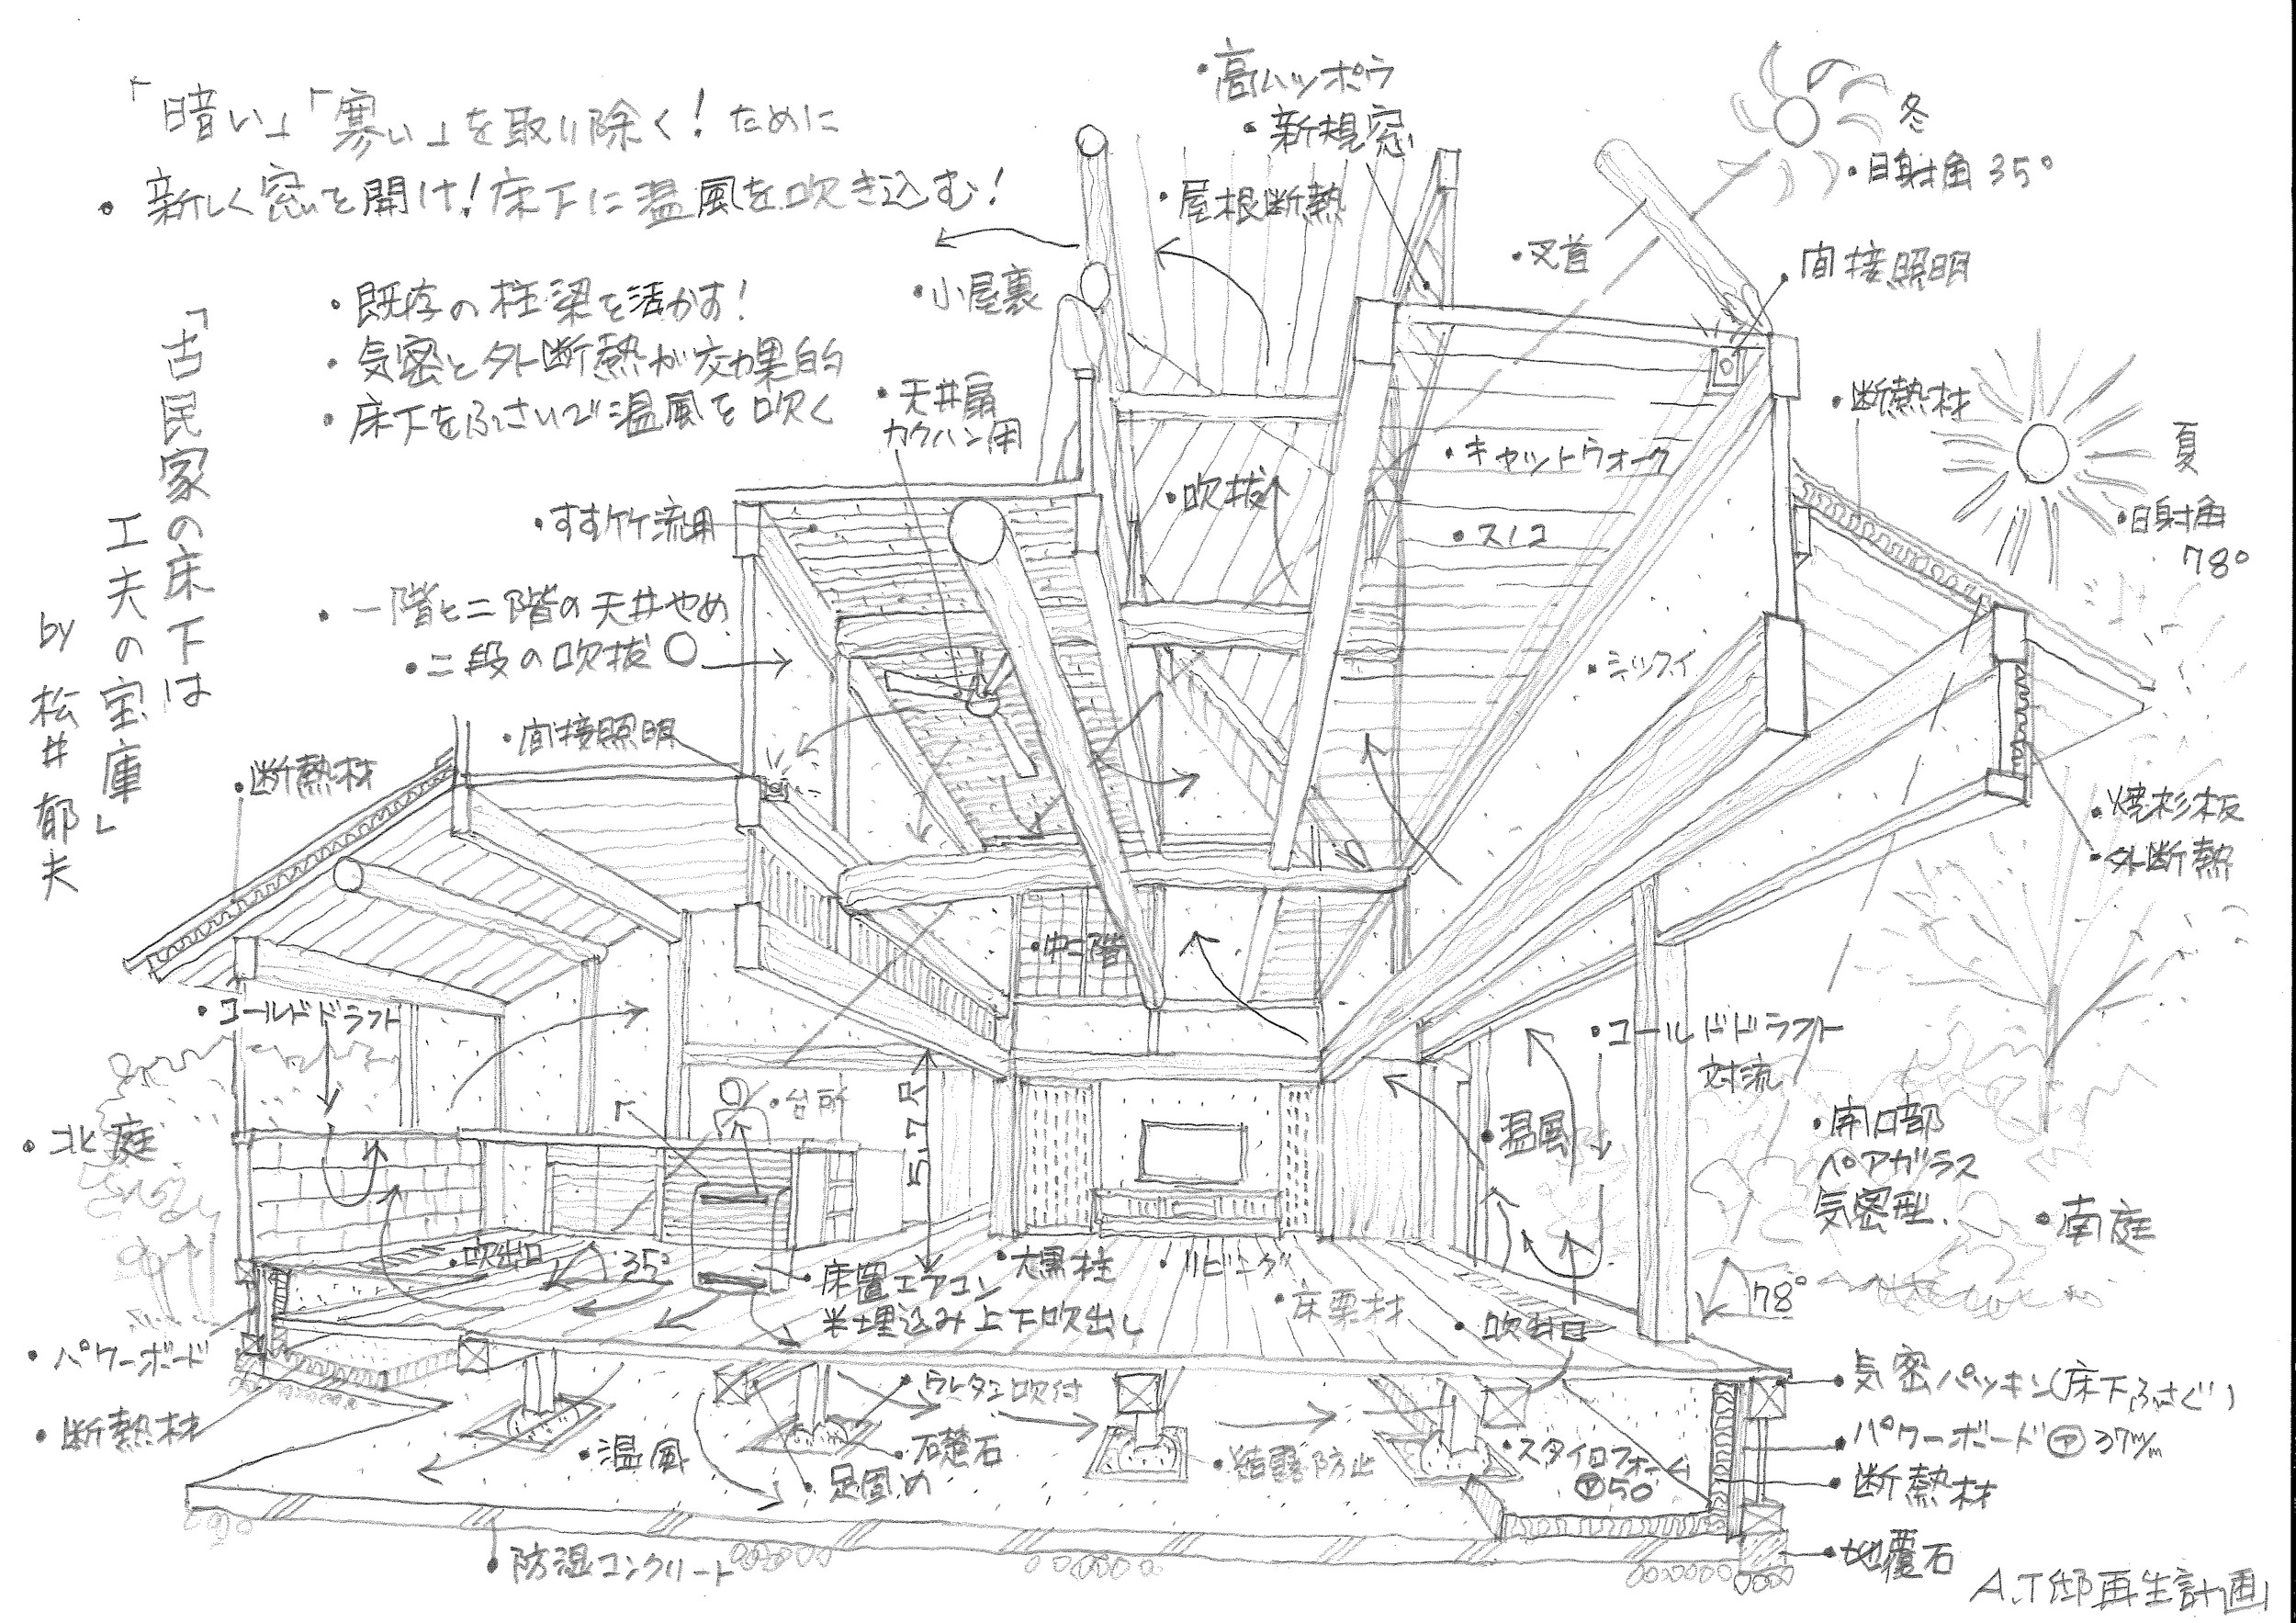 「暗い」「寒い」を取り除く！ために
・新しく窓を開け！床下に温風を吹き込む！
・既存の柱梁を活かす！
・気密と外断熱が効果的
・床下をふさいで温風を吹く
「古民家の床下は
工夫の宝庫」
by 松井郁夫
・高ハッポウ
・新規窓
・屋根断熱
・小屋裏
・叉首
冬
・日射角 35°
・間接照明
・断熱材
夏
・日射角
78°
・天井扇
カクハン用
・キャットウォーク
・吹抜
・スノコ
・すす竹流用
・一階と二階の天井やめ
・二段の吹抜〇
・シックイ
・間接照明
・断熱材
・焼杉板
・外断熱
・中二階
・コールドドラフト
・コールドドラフト
対流
・北庭
・台所
5.7尺
・温風
・開口部
ペアガラス
気密型
・南庭
・吹出口
35°
・床置エアコン
半埋込み上下吹出し
・大黒柱
・リビング
・床栗材
・吹出口
78°
・パワーボード
・断熱材
・温風
・ウレタン吹付
・礎石
・足固め
・結露防止
・スタイロフォーム
Ⓣ50
・気密パッキン(床下ふさぐ)
・パワーボードⓉ37m/m
・断熱材
・地覆石
・防湿コンクリート
A.T邸再生計画